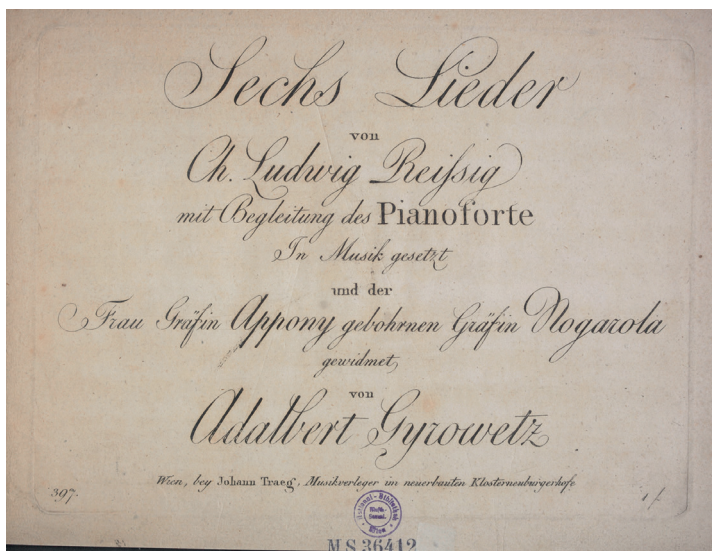 Sechs Lieder
von
Ch. Ludwig Reißig
mit Begleitung des Pianoforte
In Musik gesetzt
und der
Frau Gräfin Appony gebohrnen Gräfin Nogarola
gewidmet,
von
Adalbert Gyrowetz
Wien, bey Johann Traeg, Musikverleger im neuerbauten Klosterneuburgerhofe
397.
National-Bibliothek
Wien
MS 36412